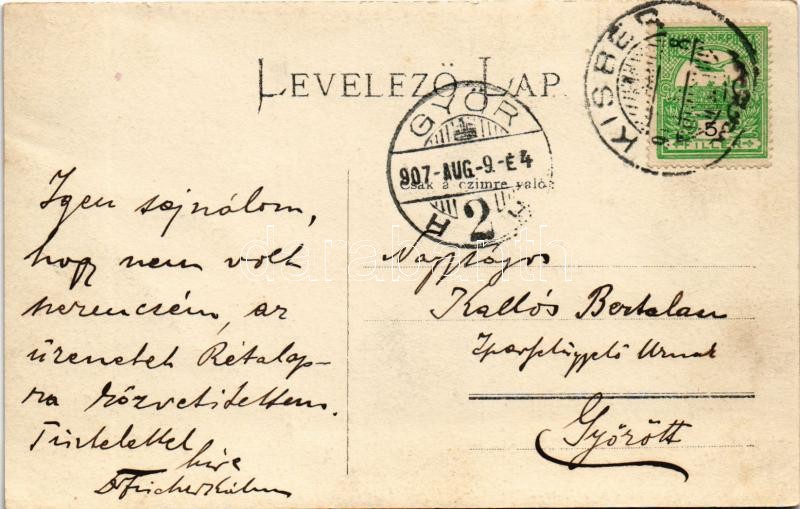 LEVELEZŐ LAP
KISBÉR
GYŐR
907-AUG.-9.-É4
2
5
Csak a czimre való.
Igen sajnálom,
hogy nem volt
szerencsém, az
üzenetek Rétalap-
ra közvetítettem.
Tisztelettel
híve
Dr Fischer Kálmán
Nagyságos
Kallós Bertalan
Iparfelügyelő Urnak
Győrött
darabanth